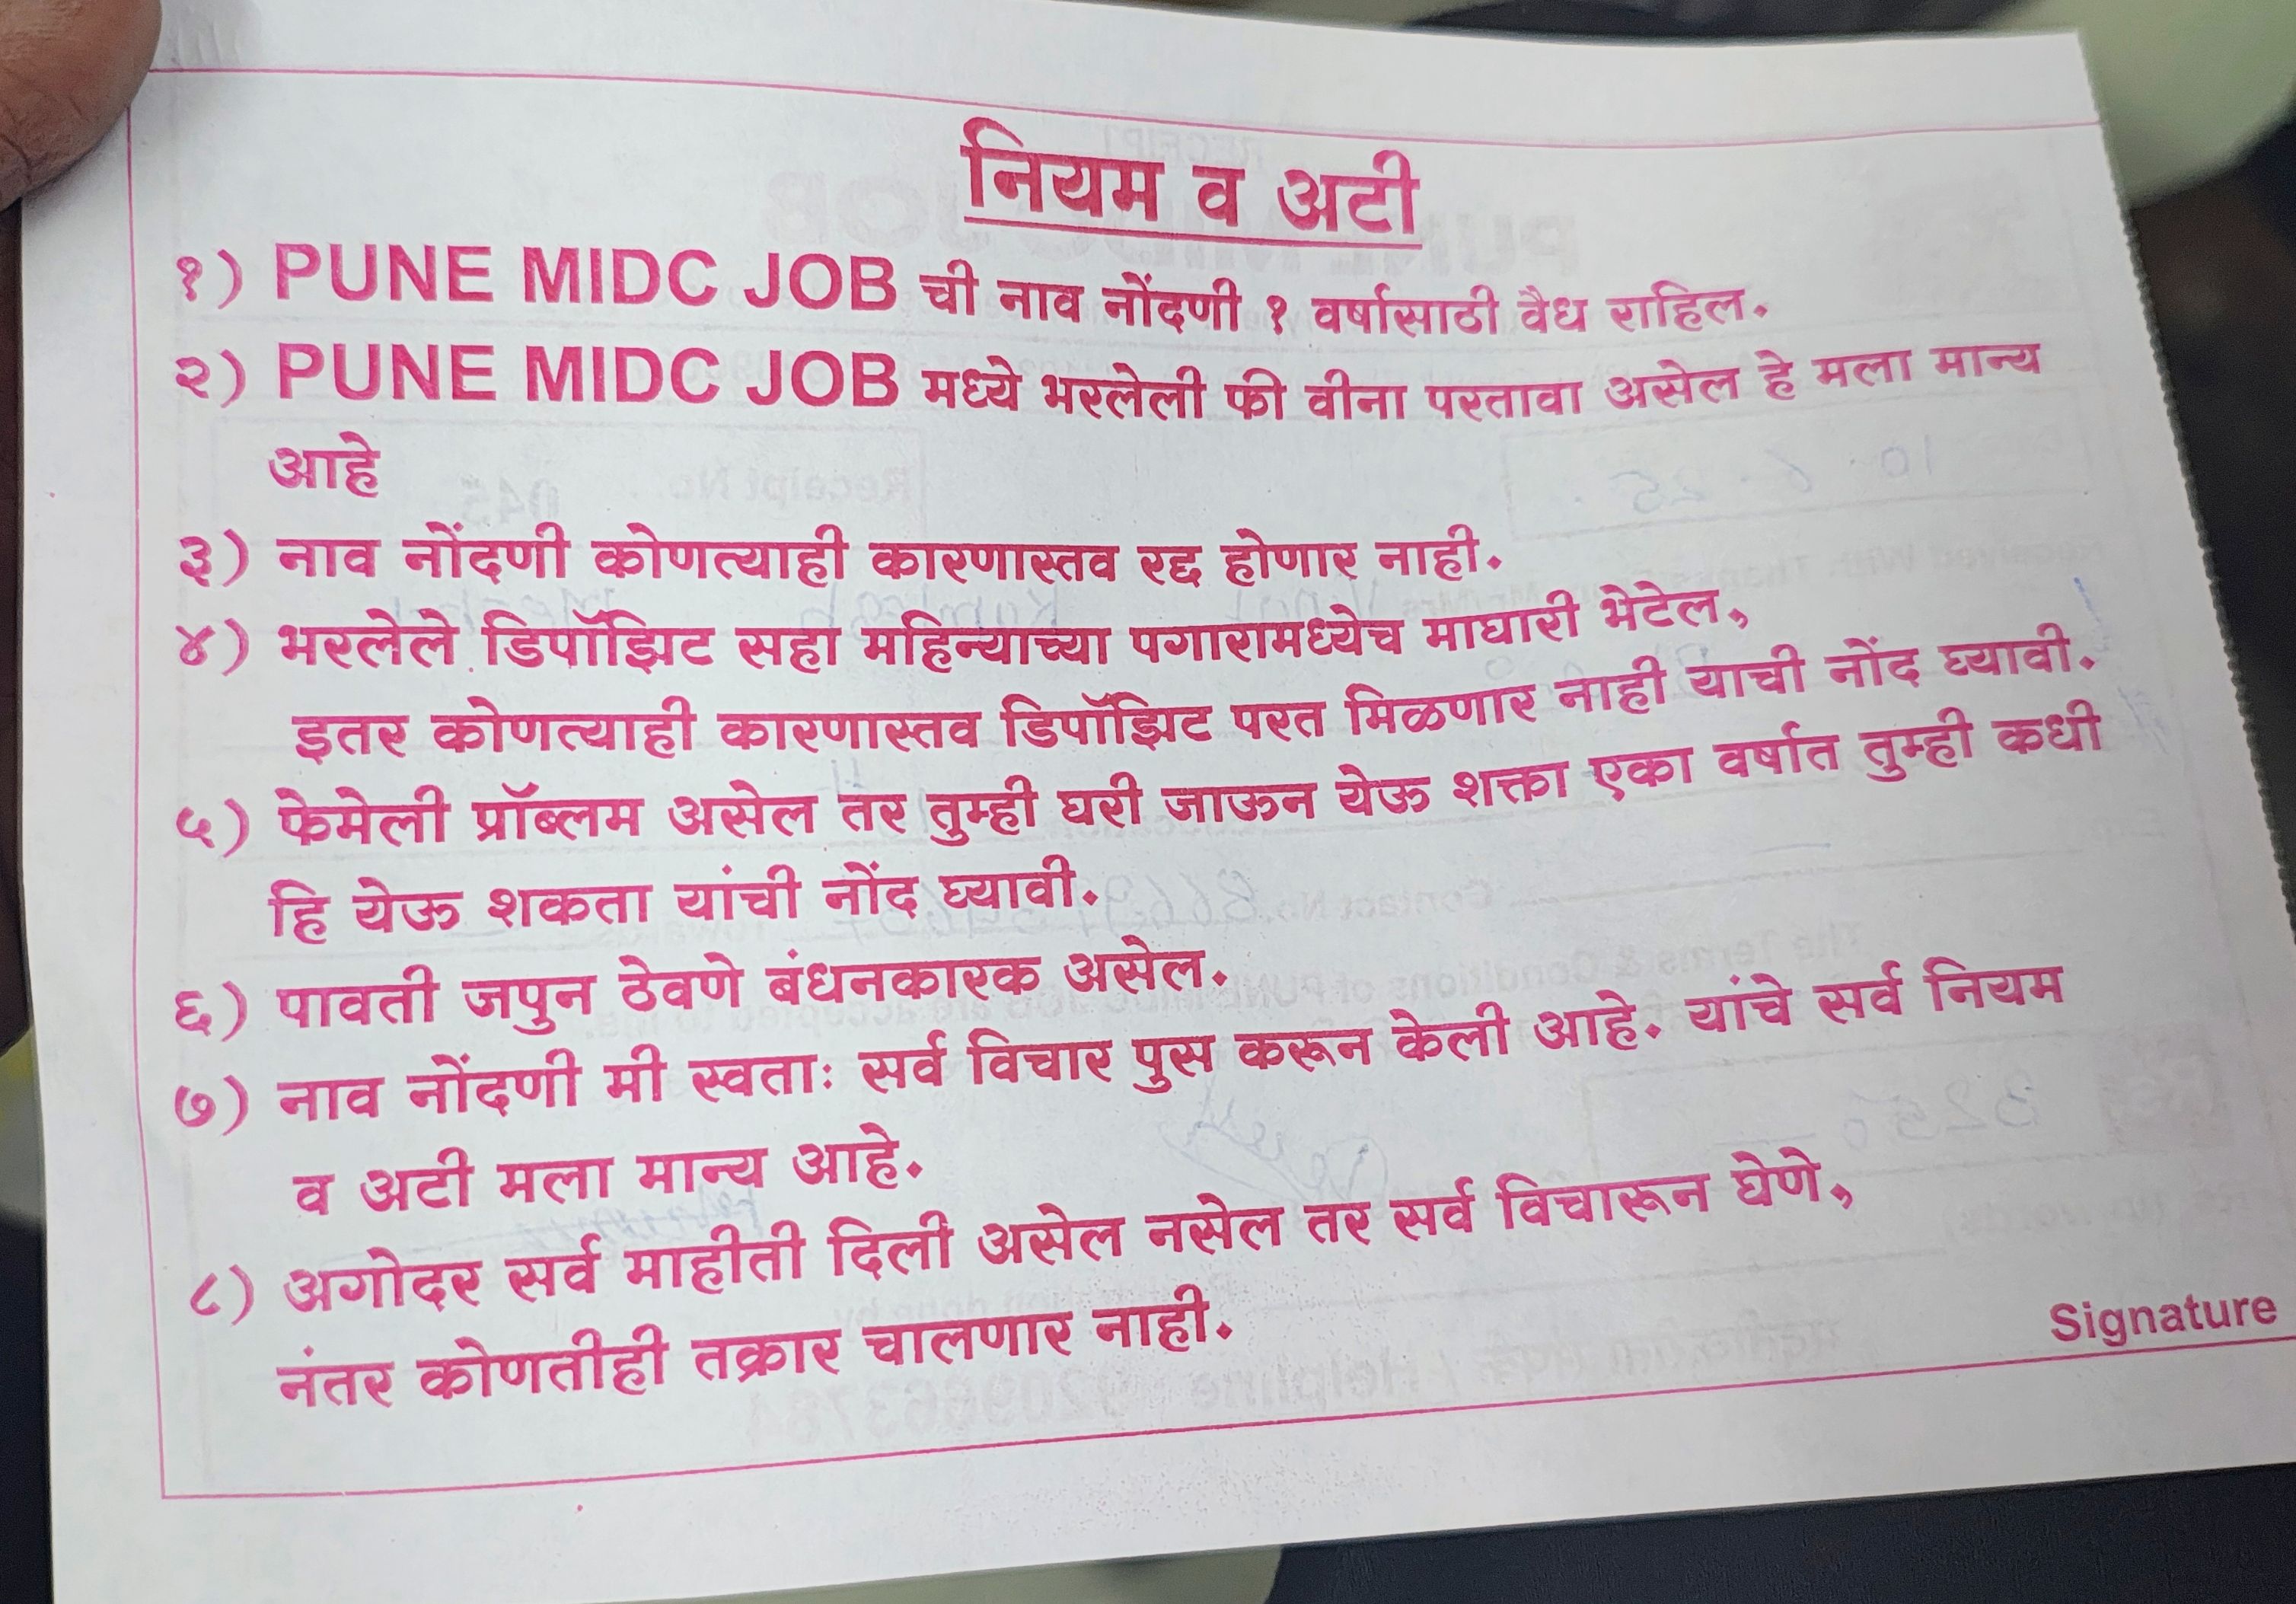 नियम व अटी
१) PUNE MIDC JOB ची नाव नोंदणी १ वर्षासाठी वैध राहिल.
२) PUNE MIDC JOB मध्ये भरलेली फी वीना परतावा असेल हे मला मान्य
आहे
३) नाव नोंदणी कोणत्याही कारणास्तव रद्द होणार नाही.
४) भरलेले डिपॉझिट सहा महिन्याच्या पगारामध्येच माघारी भेटेल,
इतर कोणत्याही कारणास्तव डिपॉझिट परत मिळणार नाही याची नोंद घ्यावी.
५) फेमेली प्रॉब्लम असेल तर तुम्ही घरी जाऊन येऊ शक्ता एका वर्षात तुम्ही कधी
हि येऊ शकता यांची नोंद घ्यावी.
६) पावती जपुन ठेवणे बंधनकारक असेल.
७) नाव नोंदणी मी स्वताः सर्व विचार पुस करून केली आहे. यांचे सर्व नियम
व अटी मला मान्य आहे.
८) अगोदर सर्व माहीती दिली असेल नसेल तर सर्व विचारून घेणे,
नंतर कोणतीही तक्रार चालणार नाही.
Signature